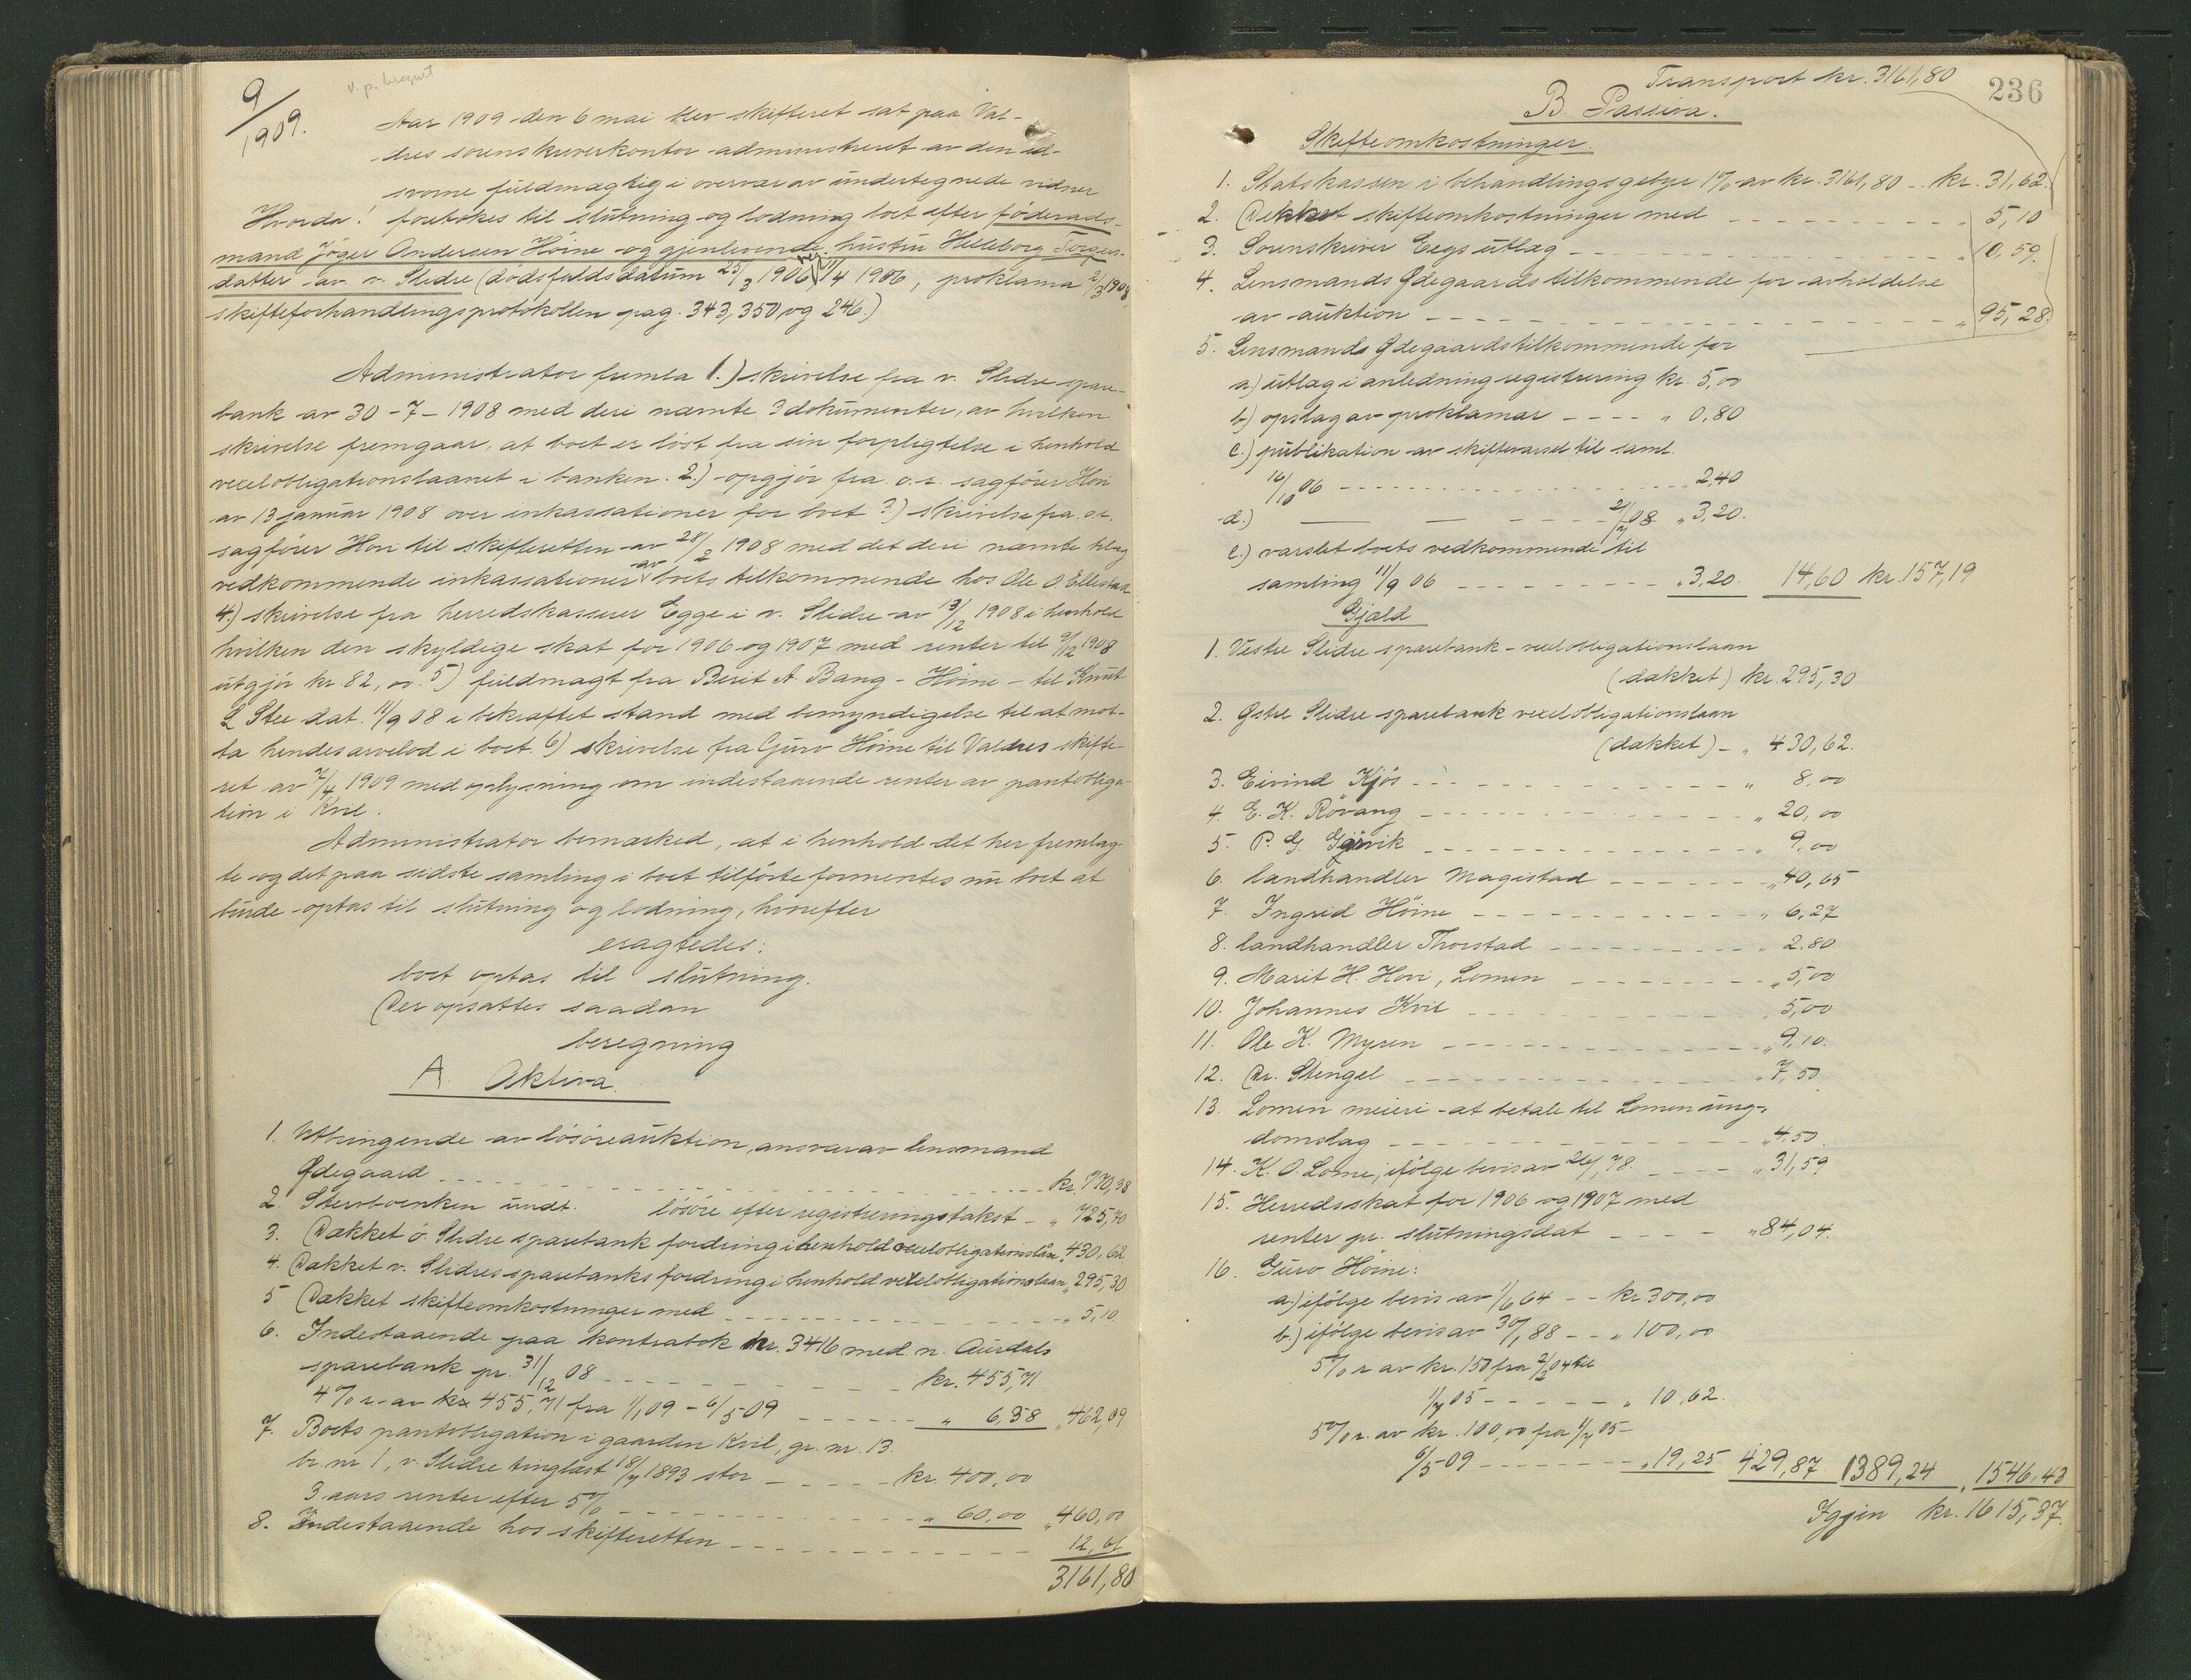 9/1909.
Aar 1909 den 6 mai blev skifteret sat paa Val-
dres sorenskriverkontor administreret av den ed-
svorne fuldmægtig i overvær av undertegnede vidner
Hvorda! foretokes til slutning og lodning boet efter föderaads-
mand Jöger Andersen Höine og gjenlevende hustru Hilleborg Torgers-
datter av v. Slidre (dödsfaldsdatum 25/3 1906, reg. 11/4 1906, proklama 2/3 1908
skifteforhandlingsprotokollen pag. 343, 350 og 246.)
Administrator fremla 1.) skrivelse fra v. Slidre spare-
bank av 30-7-1908 med deri nævnte 3 dokumenter, av hvilken
skrivelse fremgaar, at boet er löst fra sin forpligtelse i henhold
vexelobligationslaanet i banken. 2.) opgjör fra o.r. sagförer Hovi
av 13 januar 1908 over inkassationer for boet 3) skrivelse fra o.r.
sagförer Hovi til skifteretten av 28/2 1908 med det deri nævnte bilag
vedkommende inkassationer av boets tilkommende hos Ole O. Ellestad
4.) skrivelse fra herredskasserer Egge i v. Slidre av 13/12 1908 i henhold
hvilken den skyldige skat for 1906 og 1907 med renter til 9/12 1908
utgjör kr 82,00. 5) fuldmagt fra Berit A. Bang - Höine - til Knut
L Stee dat. 11/9 08 i bekræftet stand med bemyndigelse til at mot-
ta hendes arvelod i boet. 6) skrivelse fra Guro Höine til Valdres skifte-
ret av 7/4 1909 med oplysning om indestaaende renter av pantobliga-
tion i Kvil.
Administrator bemærked, at i henhold det her fremlag-
te og det paa sidste samling i boet tilförte formentes nu boet at
burde optas til slutning og lodning, hvorefter
eragtedes:
boet optas til slutning.
Der opsattes saadan
beregning
A. Aktiva.
1. Utbringende av lösöreauktion, ansvar av lensmand
Ødegaard kr. 770,98
2. Stervboenken undt. lösöre efter registreringstakst - „ 725,40
3. Dækket ö. Slidre sparebank fordring i henhold vexelobligationslån „ 430,62
4. Dækket v. Slidres sparebanks fordring i henhold vexelobligationslaan „ 295,30
5 Dækket skifteomkostninger med „ 5,10
6. Indestaaende paa kontrabok nr. 3416 med n. Aurdals
sparebank pr. 31/12 08 kr. 455,71
4% r. av kr 455,71 fra 1/1 09 - 6/5 09 „ 6,38 „ 462,09
7. Boets pantobligation i gaarden Kvil, gr. nr. 13.
br. nr 1, v. Slidre tinglæst 18/7 1893 stor kr. 400,00
3 aars renter efter 5% „ 60,00 „ 460,00
8. Indestaaende hos skifteretten 12,61
3161,80
236
Transport kr. 3161,80
B. Passiva.
Skifteomkostninger.
1. Statskassen i behandlingsgebyr 1% av kr. 3161,80 kr. 31,62.
2. Dækket skifteomkostninger med „ 5,10
3. Sorenskriver Eegs utlæg „ 10,59.
4. Lensmands Ødegaards tilkommende for avholdelse
av auktion „ 95,28.
5. Lensmands Ødegaards tilkommende for
a.) utlæg i anledning registrering kr. 5,00
b) opslag av proklamar „ 0,80
c.) publikation av skiftevarsel til saml.
16/10 06 „ 2,40
d.) — — — 21/7 08 „ 3,20.
e.) varslet boets vedkommende til
samling 11/9 06 „ 3,20. 14,60 kr. 157,19
Gjæld
1. Vestre Slidre sparebank - vexelobligationslaan
(dækket) kr. 295,30
2. Østre Slidre sparebank vexelobligationslaan
(dækket) - „ 430,62.
3. Eivind Kjös „ 8,00
4. E. K. Rövang „ 20,00
5. P. G. Gjövik „ 9,00
6. landhandler Magistad „ 40,65
7. Ingrid Höine „ 6,27
8. landhandler Thorstad „ 2.80.
9. Marit H. Hovi, Lomen „ 5,00
10. Johannes Kvil „ 5,00
11. Ole K. Myren „ 9,10.
12. Dr. Stengel „ 7,50
13. Lomen meieri - at betale til Lomen ung-
domslag „ 4,50.
14. K. O. Lome, ifölge bevis av 26/1 78. „ 31,59
15. Herredsskat for 1906 og 1907 med
renter pr. slutningsdat „ 84,04.
16. Guro Höine:
a.) ifölge bevis av 1/6 64 - - kr 300,00
b.) ifölge bevis av 30/1 88 - - „ 100,00
5% r av kr. 150 fra 2/2 04 til
1/7 05 „ 10,62.
5% r. av kr. 100,00 fra 1/7 05 -
6/5 09 „ 19,25 429,87 1389,24 „ 1546,43
Igjen kr. 1615,37.